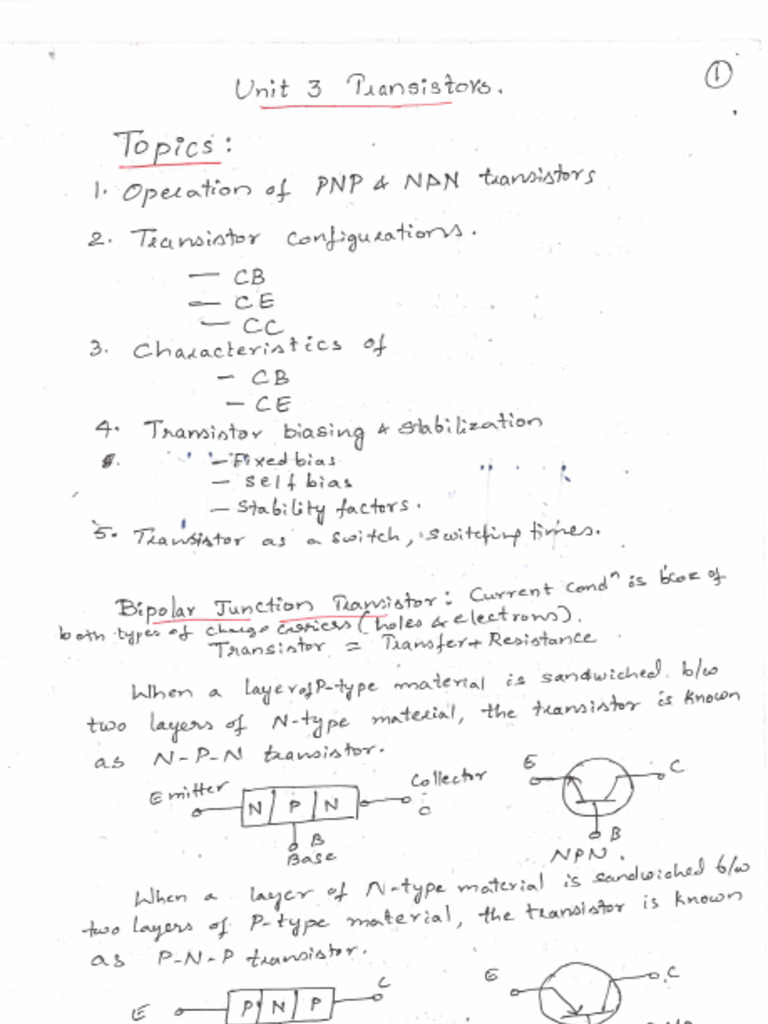 1
Unit 3 Transistors.
Topics:
1. Operation of PNP & NAN transistors
2. Transistor configurations.
— CB
— CE
— CC
3. Characteristics of
— CB
— CE
4. Transistor biasing & stabilization
— Fixed bias
— Self bias
— Stability factors.
5. Transistor as a switch, switching times.
Bipolar Junction Transistor: Current condⁿ is bcoz of
both types of charge carriers (holes & electrons).
Transistor = Transfer + Resistance
When a layer of P-type material is sandwiched b/w
two layers of N-type material, the transistor is known
as N-P-N transistor.
Emitter N P N Collector C
B
Base
E C
B
NPN.
When a layer of N-type material is sandwiched b/w
two layers of P-type material, the transistor is known
as P-N-P transistor.
E P N P C
E C